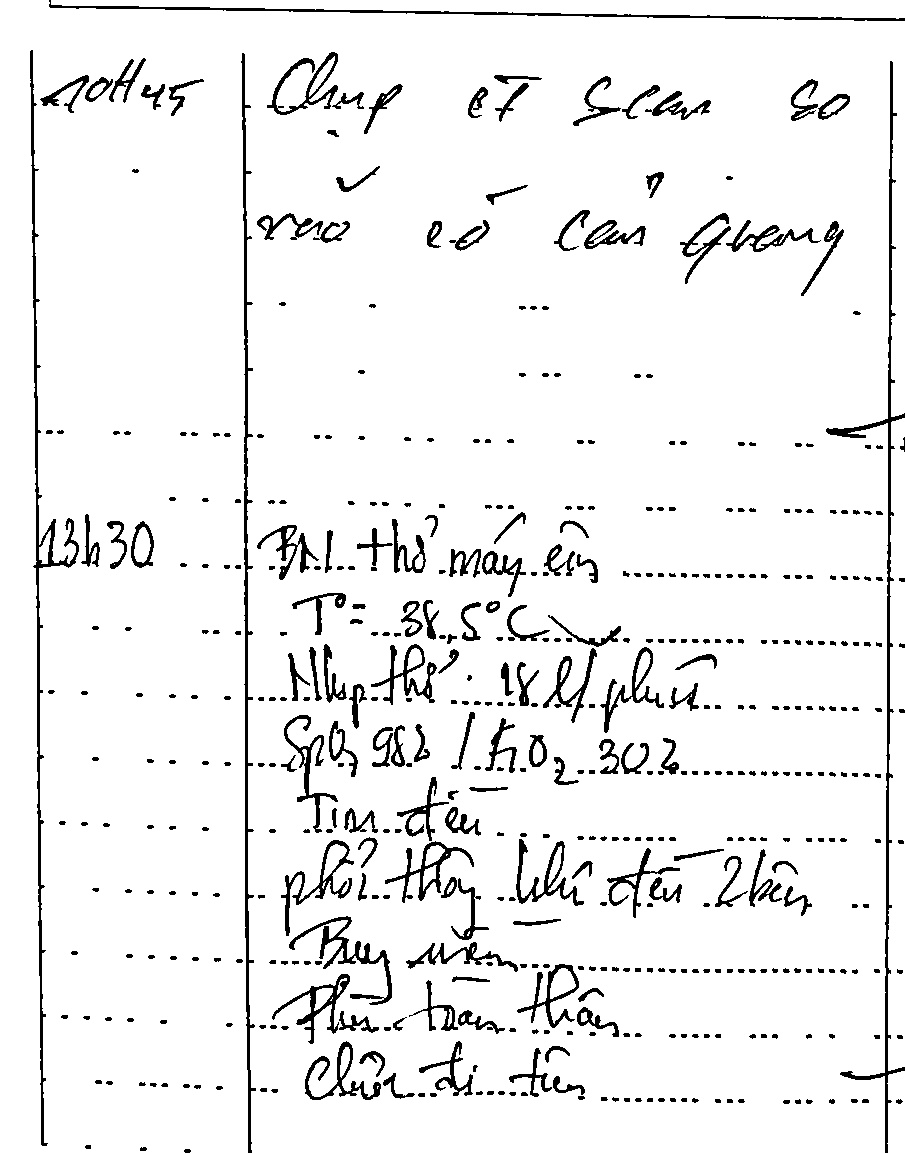 10H45 Chụp CT Scan sọ
não có cản quang
13h30 BN thở máy êm
T° = 38,5°C
Nhịp thở: 18 l/phút
SpO2 98% / FiO2 30%
Tim đều
phổi thông khí đều 2 bên
Bụng mềm
Phù toàn thân
Chưa đi tiêu